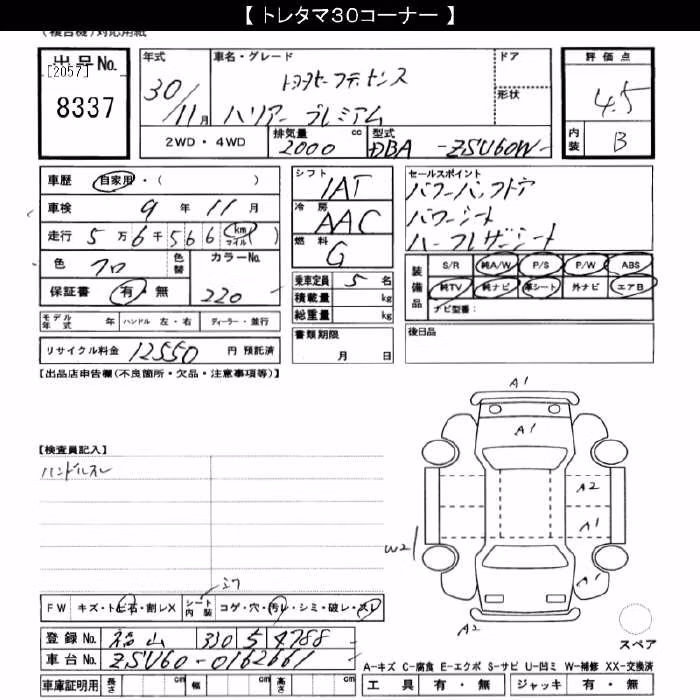 【 トレタマ30コーナー 】
(複合機)対応用紙
出品No.
[2057]
8337
年式
30/11月
車名・グレード
ハリアー プレミアム
ドア
形状
評価点
4.5
内装
B
2WD・4WD
排気量
2000 cc
型式
DBA -ZSU60W-
車歴 自家用・( )
車検 9年 11月
走行 5万6千566 (km マイル)
色 クロ
色替
カラーNo.
220
保証書 有・無
モデル年式 年 ハンドル 左・右 ディーラー・並行
リサイクル料金 12550 円 預託済
シフト
IAT
冷房
AAC
燃料
G
乗車定員 5 名
積載量 kg
総重量 kg
書類期限
月 日
セールスポイント
パワーバックドア
パワーシート
ハーフレザーシート
装備品
S/R 純A/W P/S P/W ABS
純TV 純ナビ 革シート 外ナビ エアB
ナビ型番:
後日品
【出品店申告欄(不良箇所・欠品・注意事項等)】
【検査員記入】
ハンドルスレ
A1
A1
A2
A1
W2
A1
A2
スペア
FW キズ・トビ石・割レX
シート内装
コゲ・穴・汚レ・シミ・破レ・スレ
登録No. 福山 330 5 4788
車台No. ZSU60-0162661
車庫証明用 長さ cm 幅 cm 高さ cm
A-キズ C-腐食 E-エクボ S-サビ U-凹ミ W-補修 XX-交換済
工具 有・無 ジャッキ 有・無